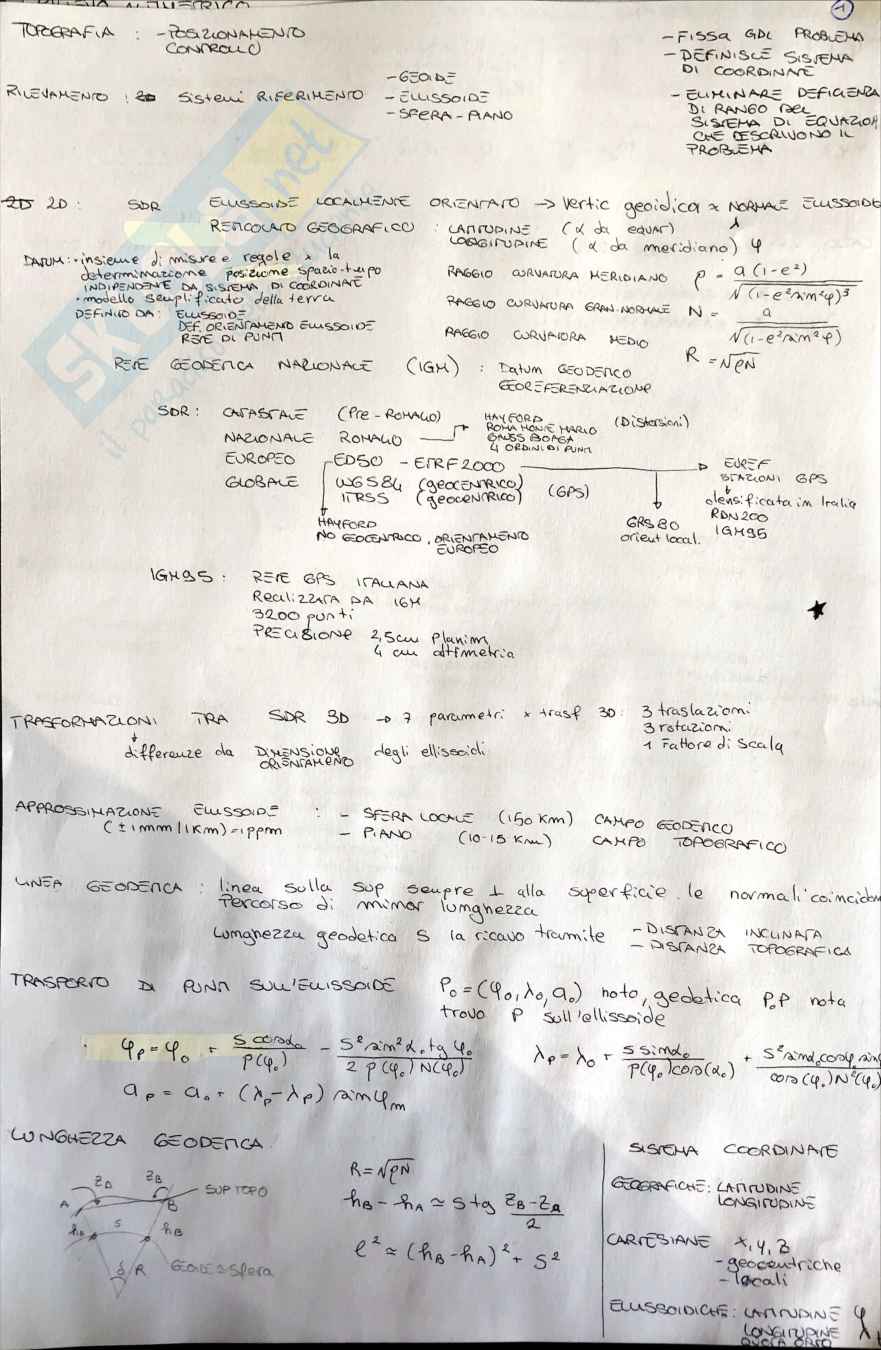 1
TOPOGRAFIA : - POSIZIONAMENTO
CONTROLLO
- FISSA GDL PROBLEMA
- DEFINISCE SISTEMA
DI COORDINATE
- ELIMINARE DEFICIENZA
DI RANGO DEL
SISTEMA DI EQUAZIONI
CHE DESCRIVONO IL
PROBLEMA
RILEVAMENTO : 2D Sistemi RIFERIMENTO
- GEOIDE
- ELLISSOIDE
- SFERA - PIANO
2D 2D : SDR ELLISSOIDE LOCALMENTE ORIENTATO → vertic geoidica x NORMALE ELLISSOIDE
RETICOLATO GEOGRAFICO : LATITUDINE (α da equat) λ
LONGITUDINE (α da meridiano) φ
DATUM : · insieme di misure e regole x la
determinazione posizione spazio-tempo
INDIPENDENTE DA SISTEMA DI COORDINATE
· modello semplificato della terra
DEFINITO DA : ELLISSOIDE
DEF. ORIENTAMENTO ELLISSOIDE
RETE DI PUNTI
RAGGIO CURVATURA MERIDIANO ρ = a(1-e²) / √(1-e² sin²φ)³
RAGGIO CURVATURA GRAN NORMALE N = a / √(1-e² sin²φ)
RAGGIO CURVATURA MEDIO R = √ρN
RETE GEODETICA NAZIONALE (IGM) : Datum GEODETICO
GEOREFERENZIAZIONE
SDR : CATASTALE (Pre-ROMA40)
NAZIONALE ROMA40
HAYFORD
ROMA MONTE MARIO
GAUSS BOAGA
4 ORDINI DI PUNTI
(Distorsioni)
EUROPEO ED50 - ETRF2000
GLOBALE WGS84 (geocentrico)
ITRSS (geocentrico)
(GPS)
HAYFORD
NO GEOCENTRICO, ORIENTAMENTO
EUROPEO
GRS80
orient local.
EUREF
STAZIONI GPS
densificata in Italia
RDN200
IGM95
IGM95 : RETE GPS ITALIANA
Realizzata DA IGM
3200 punti
PRECISIONE 2,5cm Planim
4 cm altimetria
TRASFORMAZIONI TRA SDR 3D → 7 parametri x trasf 3D : 3 traslazioni
3 rotazioni
1 Fattore di Scala
differenze da DIMENSIONE degli ellissoidi
ORIENTAMENTO
APPROSSIMAZIONE ELLISSOIDE : - SFERA LOCALE (150 Km) CAMPO GEODETICO
(±1mm/1Km)=1ppm - PIANO (10-15 Km) CAMPO TOPOGRAFICO
LINEA GEODETICA : linea sulla sup sempre ⊥ alla superficie. le normali coincidon
Percorso di minor lunghezza
Lunghezza geodetica S la ricavo tramite - DISTANZA INCLINATA
- DISTANZA TOPOGRAFICA
TRASPORTO DI PUNTI SULL'ELLISSOIDE P₀=(φ₀,λ₀,a₀) noto, gedetica P₀P nota
trovo P sull'ellissoide
φₚ = φ₀ + S cosα₀ / ρ(φ₀) - S² sin²α₀ tg φ₀ / 2 ρ(φ₀) N(φ₀)
λₚ = λ₀ + S sinα₀ / ρ(φ₀) cos(α₀) + S² sinα₀ cosφ₀ sin / cos(φ₀) N²(φ₀)
aₚ = a₀ + (λₚ - λₚ) sin φm
LUNGHEZZA GEODETICA
Z_A Z_B SUP TOPO
A B
h_A S h_B
δ R GEOIDE≃Sfera
R = √ρN
h_B - h_A ≃ S tg (Z_B - Z_A)/2
l² ≃ (h_B - h_A)² + S²
SISTEMA COORDINATE
GEOGRAFICHE : LATITUDINE
LONGITUDINE
CARTESIANE x, y, z
- geocentriche
- locali
ELLISSOIDICHE : LATITUDINE φ
LONGITUDINE λ